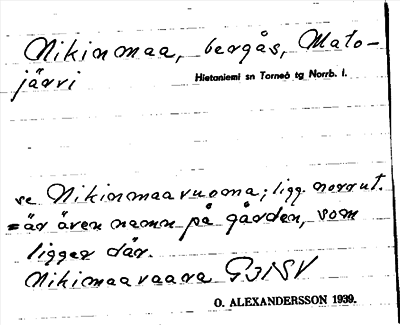 Nikinmaa, bergås, Mato-
järvi
Hietaniemi sn Torneå tg Norrb. l.
se Nikinmaavuoma; ligg. norrut.
= är även namn på gården, som
ligger där.
Nikimaavaara G31SV
O. ALEXANDERSSON 1939.